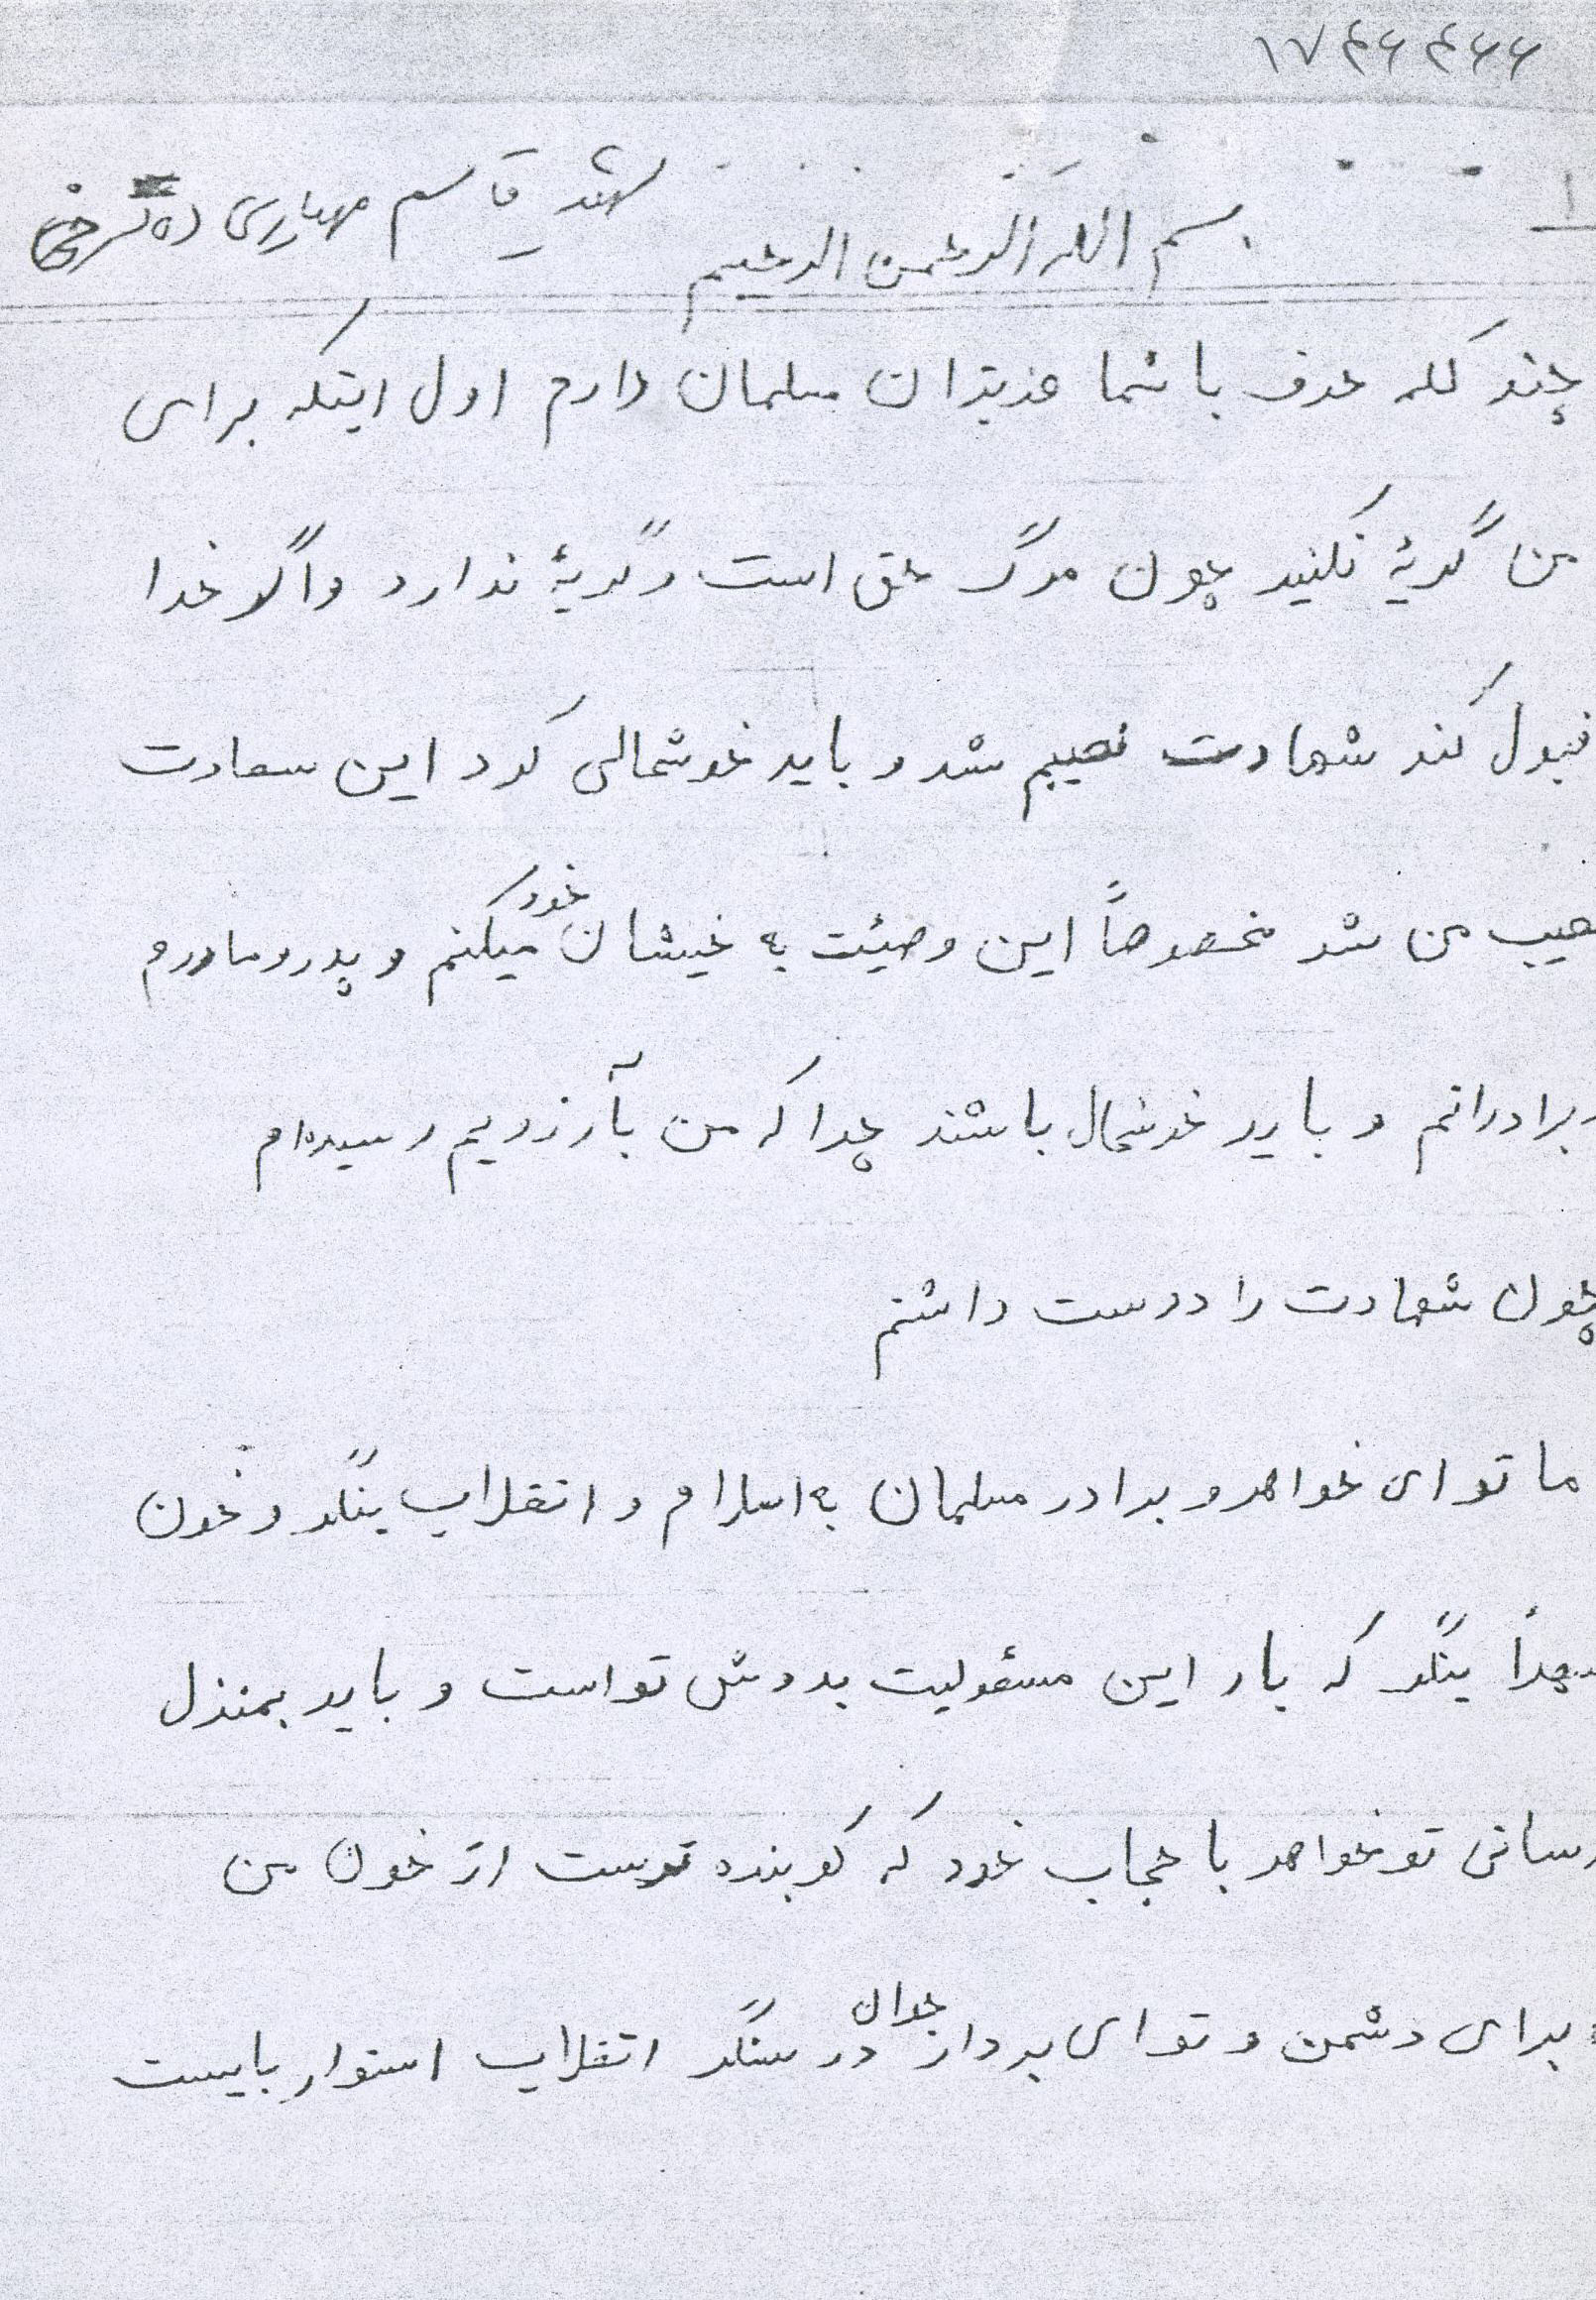 ۱۷۴۶۴۶۶
۱
بسم الله الرحمن الرحیم
شهید قاسم مهیاری ده سرخی
چند کلمه حرف با شما عزیزان مسلمان دارم اول اینکه برای
من گریۀ نکنید چون مرگ حق است و گریۀ ندارد و اگر خدا
قبول کند شهادت نصیبم شد و باید خوشحالی کرد این سعادت
نصیب من شد مخصوصاً این وصیّت به خیشان خود میکنم و پدر و مادرم
و برادرانم و باید خوشحال باشند چرا که من بآرزویم رسیدهام
چون شهادت را دوست داشتم
ما تو ای خواهر و برادر مسلمان به اسلام و انقلاب بنگر و خون
شهدأ بنگر که بار این مسئولیت بدوش تو است و باید بمنزل
رسانی تو خواهر با حجاب خود که کوبنده ترست از خون من
برای دشمن و تو ای بردار جوان در سنگر انقلاب استوار بایست